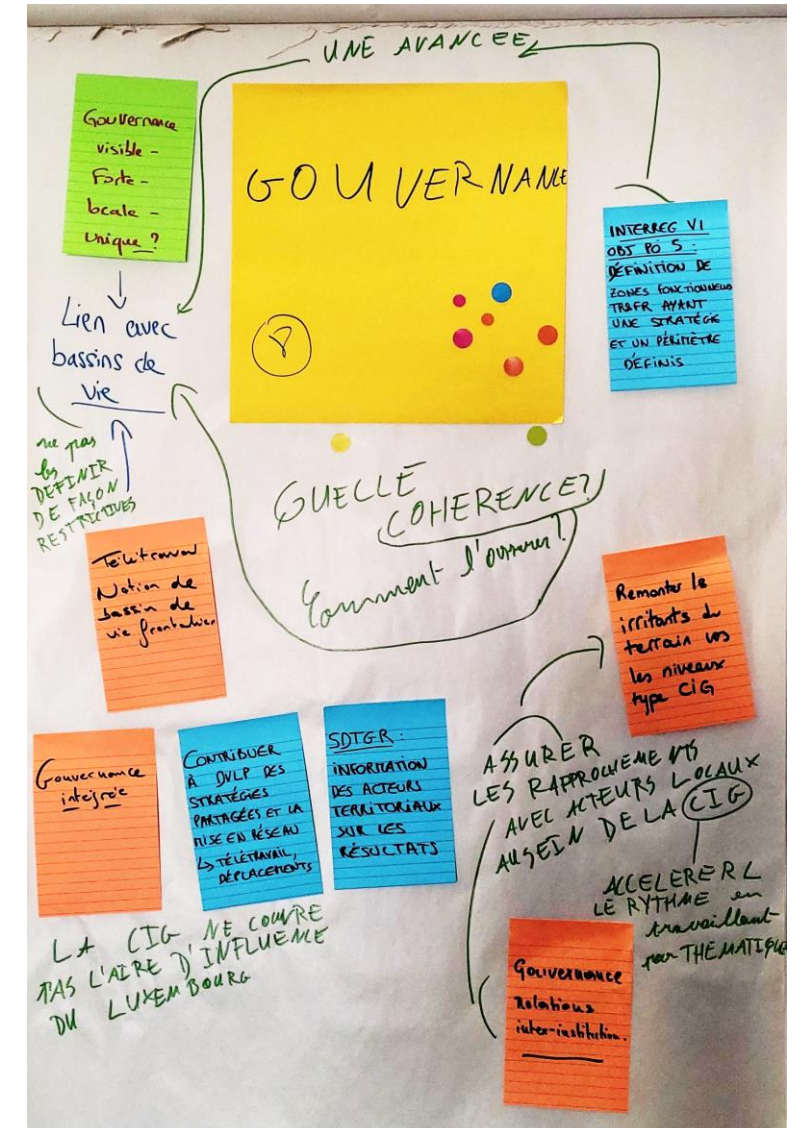 UNE AVANCEE
Gouvernance
visible -
Forte -
locale -
unique ?
GOUVERNANCE
INTERREG VI
OBJ PO 5 :
DÉFINITION DE
ZONES FONCTIONNELLES
TRSFR AYANT
UNE STRATÉGIE
ET UN PÉRIMÈTRE
DÉFINIS
Lien avec
bassins de
vie
8
ne pas
les
DEFINIR
DE FAÇON
RESTRICTIVES
QUELLE
COHERENCE ?
Comment l'
Télétravail
Notion de
bassin de
vie frontalier
Remonter les
irritants du
terrain vers
les niveaux
type CIG
Gouvernance
intégrée
CONTRIBUER
À DVLP DES
STRATÉGIES
PARTAGÉES ET LA
MISE EN RÉSEAU
↳ TÉLÉTRAVAIL,
DÉPLACEMENTS
SDTGR :
INFORMATION
DES ACTEURS
TERRITORIAUX
SUR LES
RÉSULTATS
ASSURER
LES RAPPROCHEMENTS
AVEC ACTEURS LOCAUX
AU SEIN DE LA CIG
ACCELERER
LE RYTHME en
travaillant
par THEMATIQUE
LA CIG NE COUVRE
PAS L'AIRE D'INFLUENCE
DU LUXEMBOURG
Gouvernance
Relations
inter-institution.